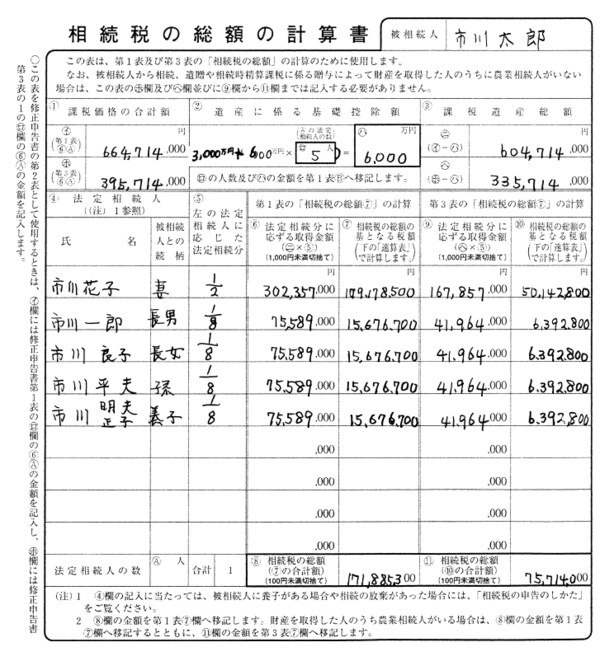 相続税の総額の計算書
被相続人 市川太郎
この表は、第1表及び第3表の「相続税の総額」の計算のために使用します。
なお、被相続人から相続、遺贈や相続時精算課税に係る贈与によって財産を取得した人のうちに農業相続人がいない
場合は、この表の㋭欄及び㋬欄並びに⑨欄から⑪欄までは記入する必要がありません。
① 課税価格の合計額 ② 遺産に係る基礎控除額 ③ 課税遺産総額
㋑ (第1表⑥Ⓐ) 円 664,714.000
3,000万円+(600万円×(Ⓐの法定相続人の数) ㋺ 5人)=㋩ 6,000 万円
㋥ (㋑-㋩) 円 604,714.000
㋭ (第3表⑥Ⓐ) 395,714.000
㋺の人数及び㋩の金額を第1表Ⓑへ移記します。
㋬ (㋭-㋩) 335,714.000
④ 法定相続人 (注)1参照)
⑤ 左の法定相続人に応じた法定相続分
第1表の「相続税の総額⑦」の計算
第3表の「相続税の総額⑦」の計算
氏名
被相続人との続柄
⑥ 法定相続分に応ずる取得金額 (㋥×⑤) (1,000円未満切捨て)
⑦ 相続税の総額の基となる税額 (下の「速算表」で計算します。)
⑨ 法定相続分に応ずる取得金額 (㋬×⑤) (1,000円未満切捨て)
⑩ 相続税の総額の基となる税額 (下の「速算表」で計算します。)
円 円 円 円
市川花子 妻 1/2 302,357.000 109,178,500 167,857.000 50,142,800
市川一郎 長男 1/8 75,589.000 15,676,700 41,964.000 6,392,800
市川 良子 長女 1/8 75,589.000 15,676,700 41,964.000 6,392,800
市川 平夫 孫 1/8 75,589.000 15,676,700 41,964.000 6,392,800
市川 明夫 正子 養子 1/8 75,589.000 15,676,700 41,964.000 6,392,800
.000 .000
.000 .000
.000 .000
.000 .000
法定相続人の数 Ⓐ 人 合計 1
⑧ 相続税の総額 (⑦の合計額) (100円未満切捨て) 171,885,300
⑪ 相続税の総額 (⑩の合計額) (100円未満切捨て) 75,714,000
(注)1 ④欄の記入に当たっては、被相続人に養子がある場合や相続の放棄があった場合には、「相続税の申告のしかた」
をご覧ください。
2 ⑧欄の金額を第1表⑦欄へ移記します。財産を取得した人のうち農業相続人がいる場合は、⑧欄の金額を第1表
⑦欄へ移記するとともに、⑪欄の金額を第3表⑦欄へ移記します。
○この表を修正申告書の第2表として使用するときは、㋑欄には修正申告書第1表の㋺欄の⑥Ⓐの金額を記入し、㋭欄には修正申告書
第3表の1の㋺欄の⑥Ⓐの金額を記入します。